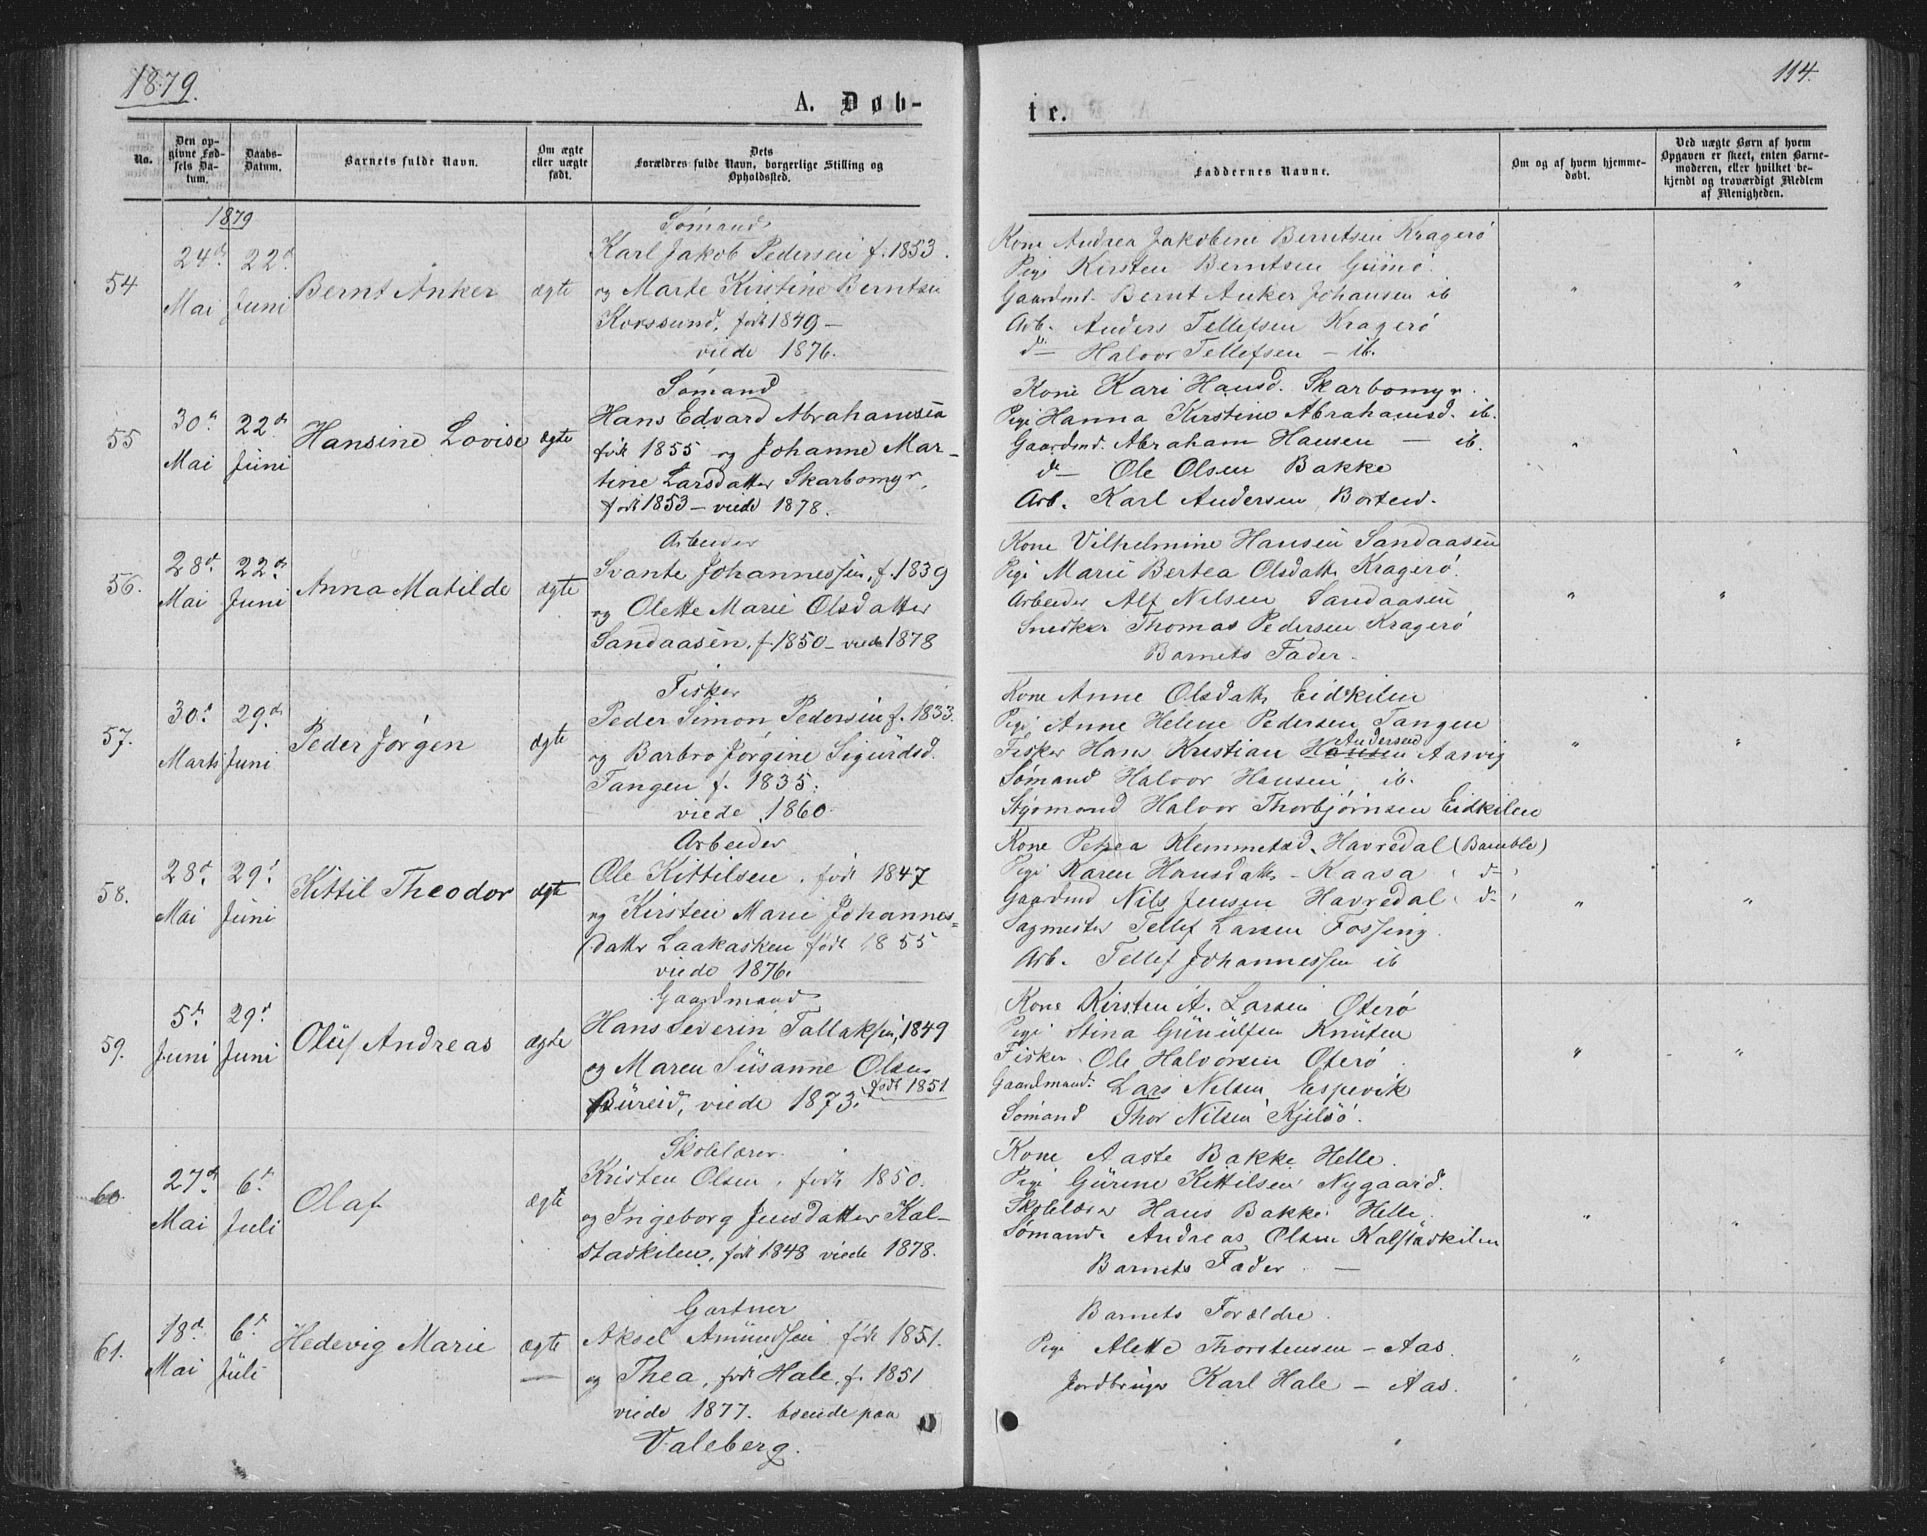 1879.
114.
A. Døb-
te.
No.
Den op-
givne Fød-
sels Da-
tum.
Daabs-
Datum.
Barnets fulde Navn.
Om ægte
eller uægte
født.
Dets
Forældres fulde Navn, borgerlige Stilling og
Opholdssted.
Faddernes Navne.
Om og af hvem hjemme-
døbt.
Ved uægte Børn af hvem
Opgaven er skeet, enten Barne-
moderen, eller hvilket be-
kjendt og troværdigt Medlem
af Menigheden.
1879
54
24de
Mai
22d
Juni
Bernt Anker
ægte
Sømand
Karl Jakob Pedersen f. 1853.
og Marte Kirstine Berntsen
Korssund, født 1849 –
viede 1876.
Kone Andrea Jakobine Berntsen Kragerø
Pige Kirsten Berntsen Gumø.
Gaardmd. Bernt Anker Johansen ib
Arb. Anders Tellefsen Kragerø
do – Halvor Tellefsen – ib.
" "
55
30te
Mai
22de
Juni
Hansine Lovise
ægte
Sømand
Hans Edvard Abrahamsen
født 1855 og Johanne Mar-
tine Larsdatter Skarbomyr,
født 1853 – viede 1878.
Kone Kari Hansd. Skarbomyr.
Pige Hanna Kirstine Abrahamsd. ib.
Gaardmd. Abraham Hansen – ib.
do – Ole Olsen Bakke
Arb. Karl Andersen, Borteid.
" "
56.
28de
Mai
22de
Juni
Anna Matilde
ægte
Arbeider
Svante Johannessen, f. 1839
og Olette Marie Olsdatter
Sandaasen, f. 1850 – viede 1878
Kone Vilhelmine Hansen Sandaasen
Pige Marie Bertea Olsdatt. Kragerø.
Arbeider Alf Nilsen Sandaasen
Snedker Thomas Pedersen Kragerø
Barnets Fader.
" "
57.
30te
Marts
29de
Juni
Peder Jørgen
ægte
Fisker
Peder Simon Pedersen f. 1833.
og Barbro Jørgine Sigurdsd.
Tangen f. 1835.
viede 1860.
Kone Anne Olsdatt. Eidkilen
Pige Anne Helene Pedersen Tangen
Andersen
Fisker Hans Kristian Hansen Aasvig
Sømand Halvor Hansen ib.
Styrmand Halvor Thorbjørnsen Eidkilen
" "
58.
28de
Mai
29de
Juni
Kittil Theodor
ægte
Arbeider
Ole Kittilsen, født 1847
og Kirsten Marie Johannes-
datter Laakasken født 1855
viede 1876.
Kone Petrea Klemmetsd. Havredal (Bamble)
Pige Karen Hansdatt. – Kaasa ( d– )
Gaardmd Nils Jensen Havredal ( d– )
Sagmester Tellef Larsen Fossing.
Arb. Tellef Johannessen ib
" "
59.
5te
Juni
29de
Juni
Oluf Andreas
ægte
Gaardmand
Hans Severin Tallaksen, 1849
og Maren Susanne Olsen
Bureid, viede 1873. født 1851.
Kone Kirsten A. Larsen Oterø
Pige Stina Gunulfsen Knuten
Fisker Ole Halvorsen Oterø.
Gaardmand Lars Nilsen Espevik
Sømand Thor Nilsen Kjelsø.
" "
60.
27de
Mai
6te
Juli
Olaf
ægte
Skolelærer
Kristen Olsen, født 1850.
og Ingeborg Jensdatter Kal-
stadkilen, født 1848 viede 1878.
Kone Aaste Bakke Helle.
Pige Gurine Kittilsen Nygaard.
Skolelærer Hans Bakke Helle.
Sømand Andreas Olsen Kalstadkilen
Barnets Fader –
" "
61.
18de
Mai
6te
Juli
Hedevig Marie
ægte
Gartner
Aksel Amundsen født 1851.
og Thea, født Hale, f. 1851
viede 1877. boende paa
Valeberg.
Barnets Forældre.
Pige Alette Thorstensen – Aas.
Jordbruger Karl Hale – Aas.
" "